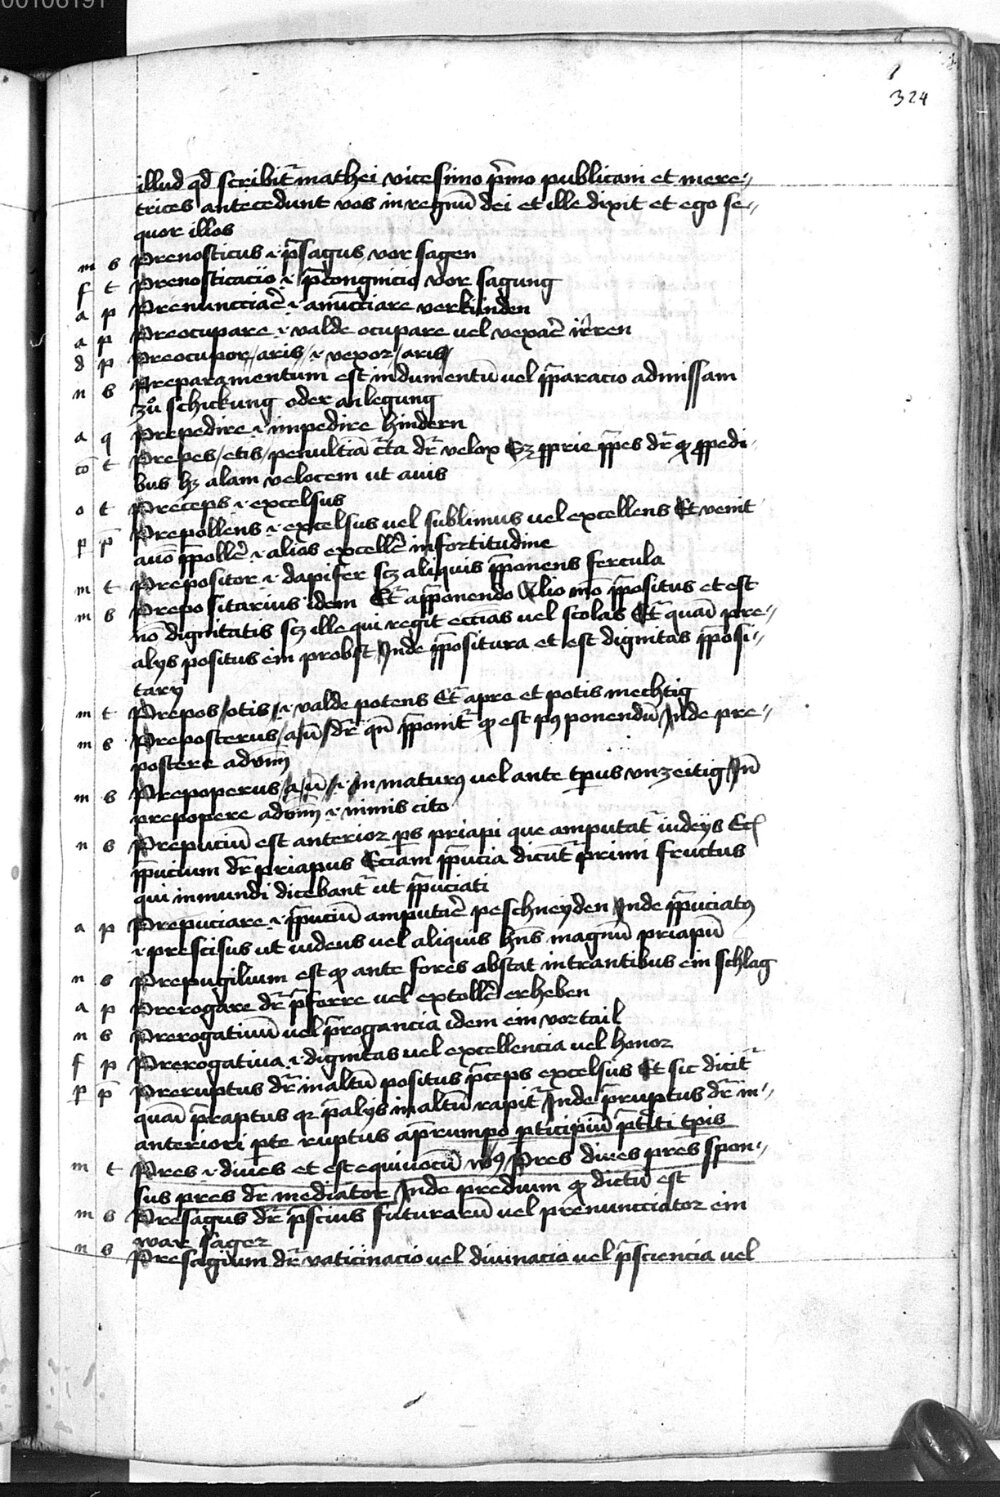 00106191
324
illud qd scribit͛ mathei vicesimo p̄mo publicani et mere⸗
trices antecedunt vos in regnū dei et ille dixit et ego se⸗
quor illos
m s Prenosticus ·i· p̄sagus vor sagen
f t Prenosticacio ·i· p̄congnicio vor sagung
a p Prenuncciac̄ ·i· anūcciare verkünden
a p Preocupare ·i· valde ocupare vel vexac̄ irren
d p Preocupor / aris / ·i· vexor / aris
n s Preparamentum est indumentū vel p̄paracio ad missam
zů schickung oder anlegung
a q Prepedire ·i· impedire hindern
co t Prepes / etis / penultīa cor̄ta dr̄ velox Sz p̄prie p̄pes dr̄ qͥ p̄pedi
bus hz alam velocem ut avis
o t Preceps ·i· excelsus
p p̄ Prepollens ·i· excelsus vel sublimus vel excellens Et venit
a v̄o p̄pollē ·i· alios excellē in fortitudine
m t Prepositor ·i· dapifer scz aliquis p̄ponens fercula
m s Prepositarius idem Et a p̄ponendo Alio mō p̄positus et est
nō dignitatis scz ille qui regit eccīas vel scolas Et quasi pre⸗
alijs positus ein probst Inde p̄positura et est dignitas p̄posi⸗
tarij
m t Prepos / otis / ·i· valde potens Et a pre et potis mechtig
m s Preposterus / a / ū / dr̄ qn̄ p̄ponit͛ qͩ est pꝯ ponendū Inde pre⸗
postere advm̄
m s Prepoperus / a / ū / ·i· in maturꝯ vel ante tp̄us vnzeitig In̄
prepopere advm̄ ·i· nimis cito
n s Prepuciū est anterior ps priapi que amputat͛ iudeijs Et
p̄pucium dr̄ priapus Eciam p̄pucia dicūt͛ primi fructus
qui inmundi dicebant͛ ut p̄puciati
a p Prepuciare ·i· p̄puciū amputac̄ peschneyden Inde p̄puciatꝯ
·i· prescisus ut iudeus vel aliquis hn̄s magnū priapū
n s Prepugilium est qͩ ante fores obstat intrantibus ein schlag
a p Prerogare dr̄ p̄ferre vel extollē erheben
n s Prerogativū vel p̄rogancia idem ein vortail
f p Prerogativa ·i· dignitas vel excellencia vel honor
p p̄ Preruptus dr̄ in altū positus p̄ceps excelsus Et sic dicit͛
quasi p̄raptus qͥ p̄ alijs in altū rapit͛ Inde p̄ruptus dr̄ in⸗
anteriori pte ruptus a p̄rumpo pticipiū p̄titi tpis
m t Pres ·i· dives et est equivocū vꝰ Pres dives pres spon⸗
sus pres dr̄ mediator Inde predium qͩ dictū est
m s Presagus dr̄ p̄scius futurarū vel prenuncciator ein
war sager
n s Presagium dr̄ vaticinacio vel divinacio vel p̄sciencia vel